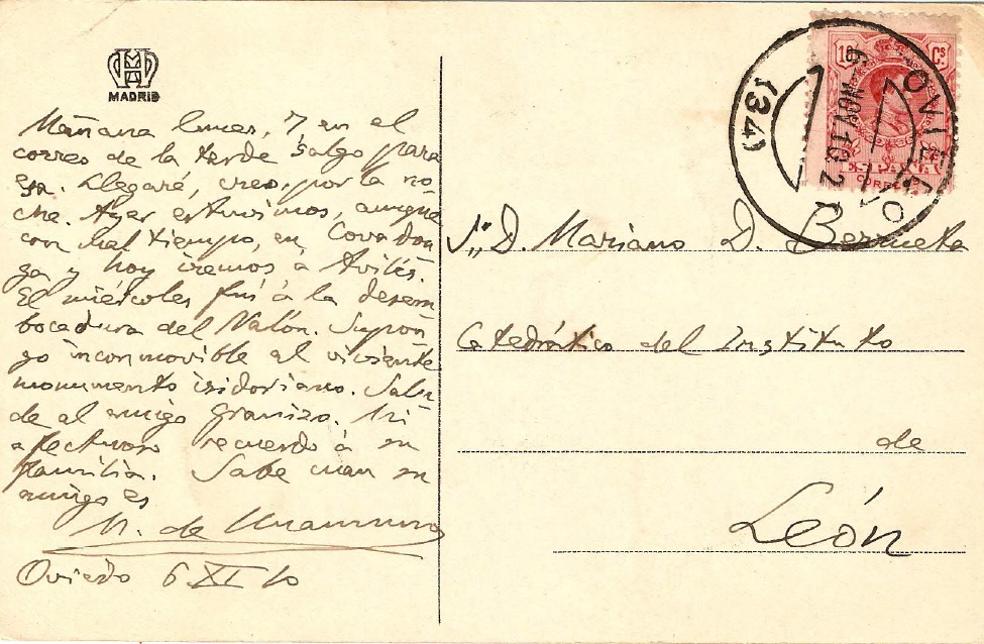 MADRID
Mañana lunes, 7 en el
correo de la tarde salgo para
esa. Llegaré, creo, por la no-
che. Ayer estuvimos, aunque
con mal tiempo, en Covadon
ga y hoy iremos á Avilés.
El miércoles fuí á la desem
bocadura del Nalón. Supon-
go inconmovible al viviente
monumento isidoriano. Salu-
de al amigo Granizo. Mi
afectuoso recuerdo á su
familia. Sabe cuan su
amigo es
M. de Unamuno
Oviedo 6 XI 10
10 Cs
ESPAÑA
CORREOS
OVIEDO
6-NOV.10
(34)
Sr. D. Mariano D. Berrueta
Catedrático del Instituto
de
León